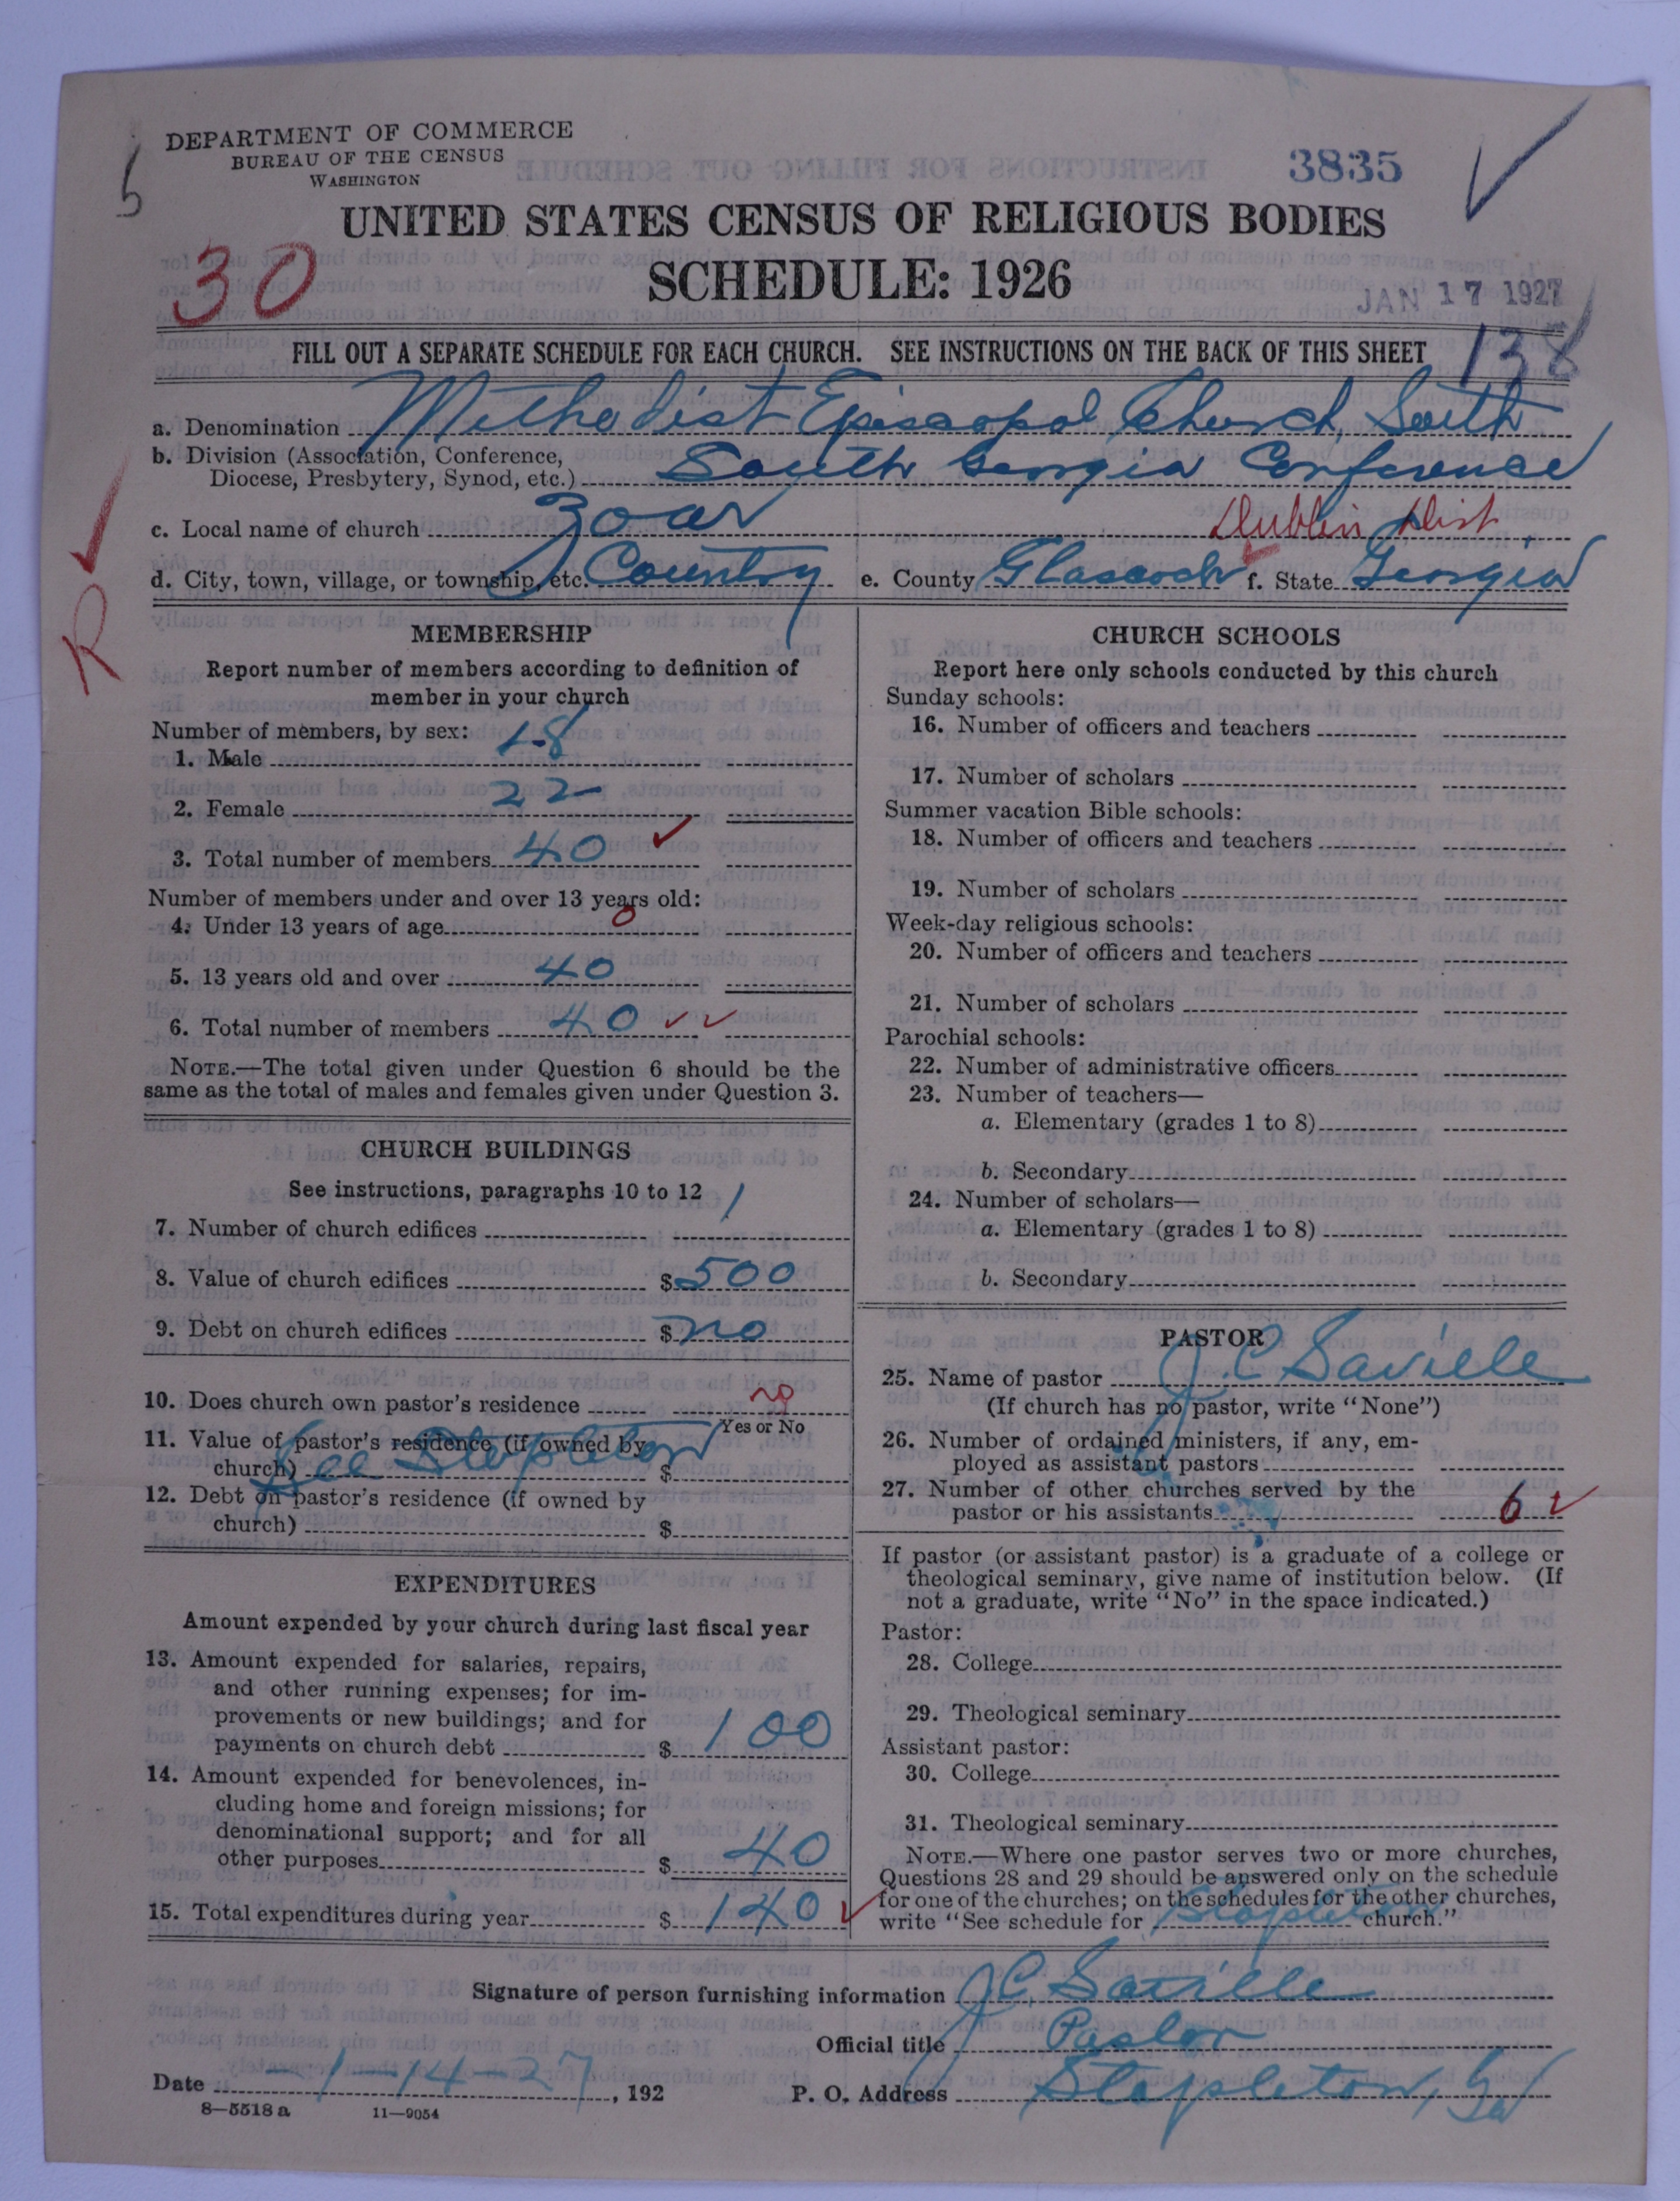 DEPARTMENT OF COMMERCE
BUREAU OF THE CENSUS
WASHINGTON
5
3835
UNITED STATES CENSUS OF RELIGIOUS BODIES
30
SCHEDULE: 1926
JAN 17 1927
FILL OUT A SEPARATE SCHEDULE FOR EACH CHURCH. SEE INSTRUCTIONS ON THE BACK OF THIS SHEET
138
a. Denomination Methodist Episcopal Church, South
b. Division (Association, Conference,
Diocese, Presbytery, Synod, etc.) South Georgia Conference
c. Local name of church Zoar Dublin Dist
d. City, town, village, or township, etc. County e. County Glascock f. State Georgia
R
MEMBERSHIP
Report number of members according to definition of
member in your church
Number of members, by sex:
1. Male 18
2. Female 22
3. Total number of members 40
Number of members under and over 13 years old:
4. Under 13 years of age 0
5. 13 years old and over 40
6. Total number of members 40
NOTE.—The total given under Question 6 should be the
same as the total of males and females given under Question 3.
CHURCH BUILDINGS
See instructions, paragraphs 10 to 12
7. Number of church edifices 1
8. Value of church edifices $ 500
9. Debt on church edifices $ no
10. Does church own pastor's residence no
Yes or No
11. Value of pastor's residence (if owned by
church) See Stapleton $
12. Debt on pastor's residence (if owned by
church) $
EXPENDITURES
Amount expended by your church during last fiscal year
13. Amount expended for salaries, repairs,
and other running expenses; for im-
provements or new buildings; and for
payments on church debt $ 100
14. Amount expended for benevolences, in-
cluding home and foreign missions; for
denominational support; and for all
other purposes $ 40
15. Total expenditures during year $ 140
CHURCH SCHOOLS
Report here only schools conducted by this church
Sunday schools:
16. Number of officers and teachers
17. Number of scholars
Summer vacation Bible schools:
18. Number of officers and teachers
19. Number of scholars
Week-day religious schools:
20. Number of officers and teachers
21. Number of scholars
Parochial schools:
22. Number of administrative officers
23. Number of teachers—
a. Elementary (grades 1 to 8)
b. Secondary
24. Number of scholars—
a. Elementary (grades 1 to 8)
b. Secondary
PASTOR
25. Name of pastor J. C. Saville
(If church has no pastor, write "None")
26. Number of ordained ministers, if any, em-
ployed as assistant pastors
27. Number of other churches served by the
pastor or his assistants 6
If pastor (or assistant pastor) is a graduate of a college or
theological seminary, give name of institution below. (If
not a graduate, write "No" in the space indicated.)
Pastor:
28. College
29. Theological seminary
Assistant pastor:
30. College
31. Theological seminary
NOTE.—Where one pastor serves two or more churches,
Questions 28 and 29 should be answered only on the schedule
for one of the churches; on the schedules for the other churches,
write "See schedule for Stapleton church."
Signature of person furnishing information J. C. Saville
Official title Pastor
Date 1-14-27, 192
P. O. Address Stapleton, Ga
8—5518 a 11—9054